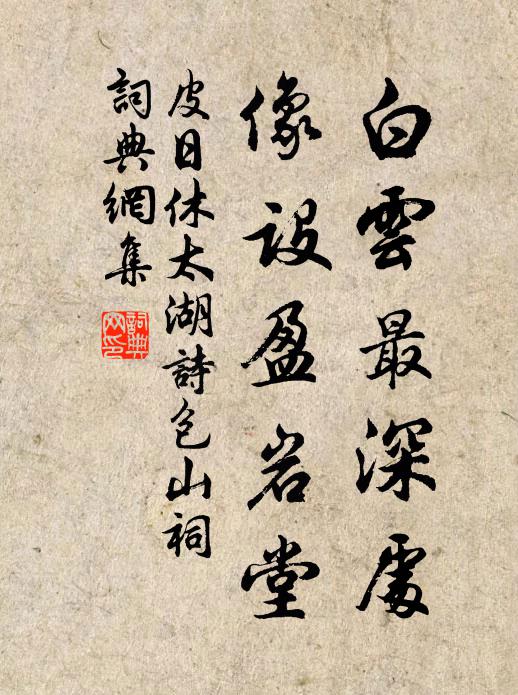 白雲最深處
像設盈岩堂
皮日休太湖詩包山祠
詞典網集
詞典
网印